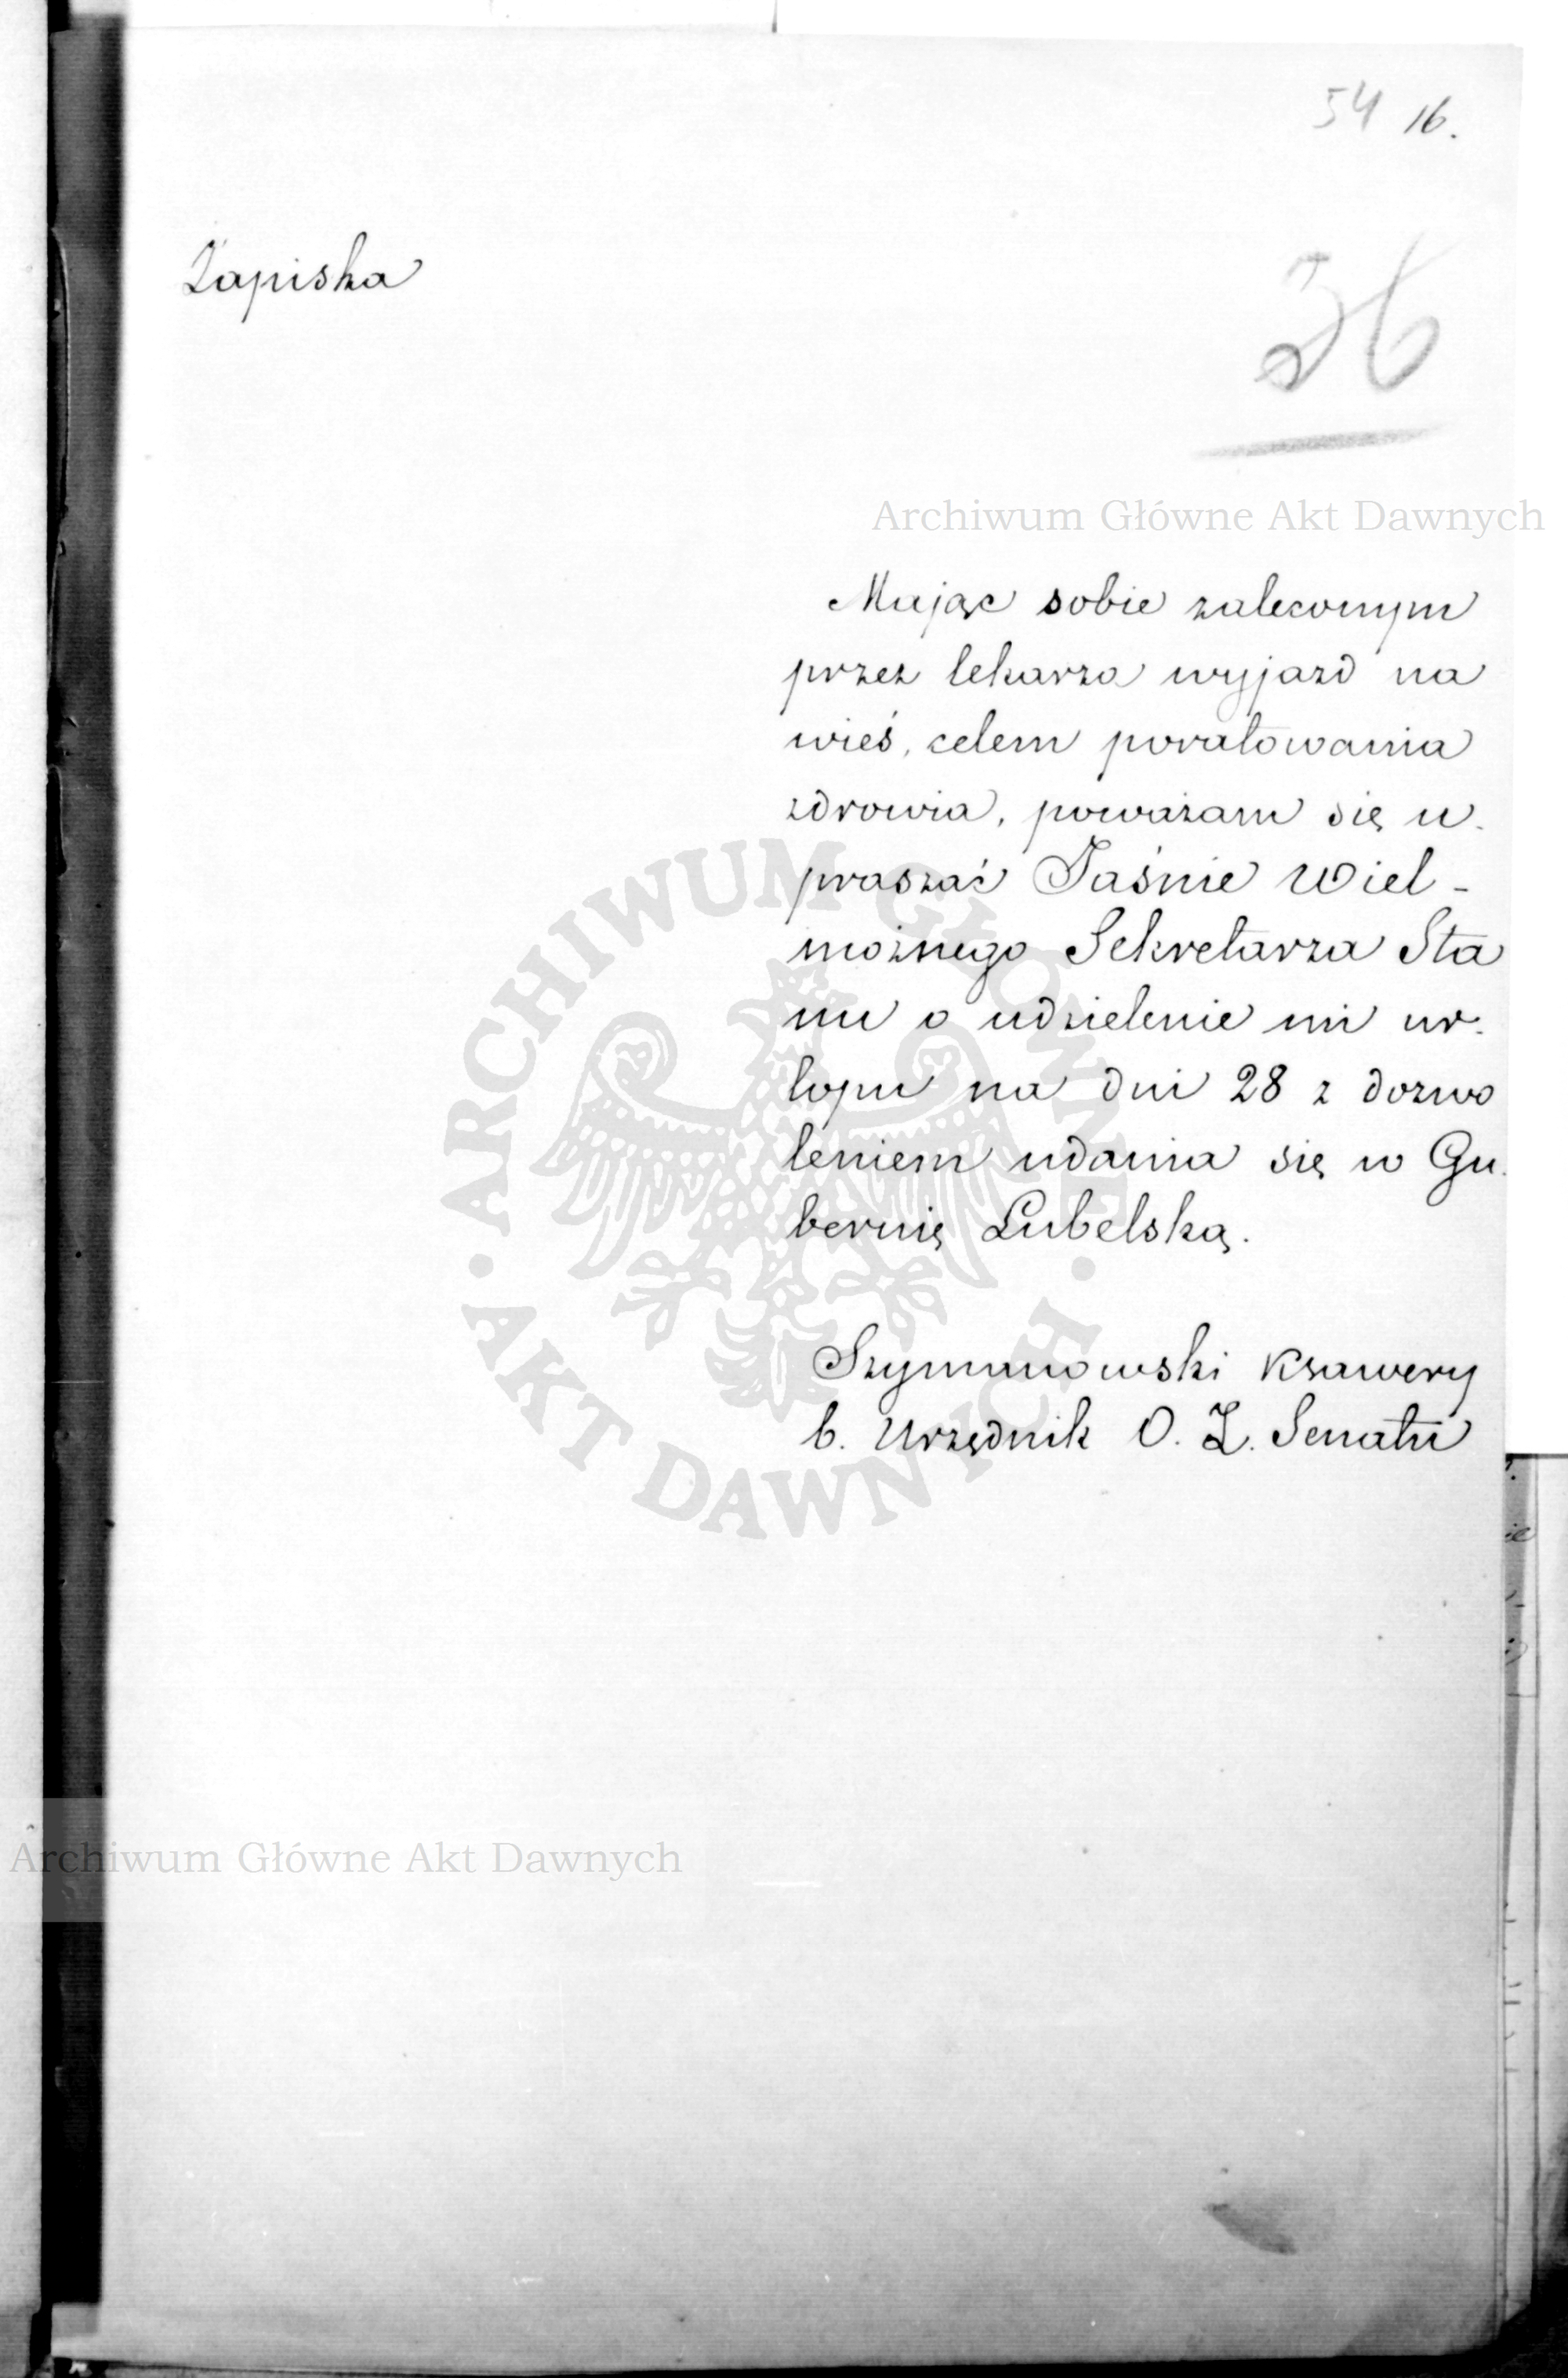 54 16.
Zapiska
36
Archiwum Główne Akt Dawnych
Mając sobie zaleconym
przez lekarza wyjazd na
wieś, celem poratowania
zdrowia, poważam się u-
praszać Jaśnie Wiel-
możnego Sekretarza Sta
nu o udzielenie mi ur-
lopu na dni 28 z dozwo
leniem udania się w Gu-
bernię Lubelską.
Szymanowski Ksawery
b. Urzędnik O. Z. Senatu
ARCHIWUM GŁÓWNE
AKT DAWNYCH
Archiwum Główne Akt Dawnych